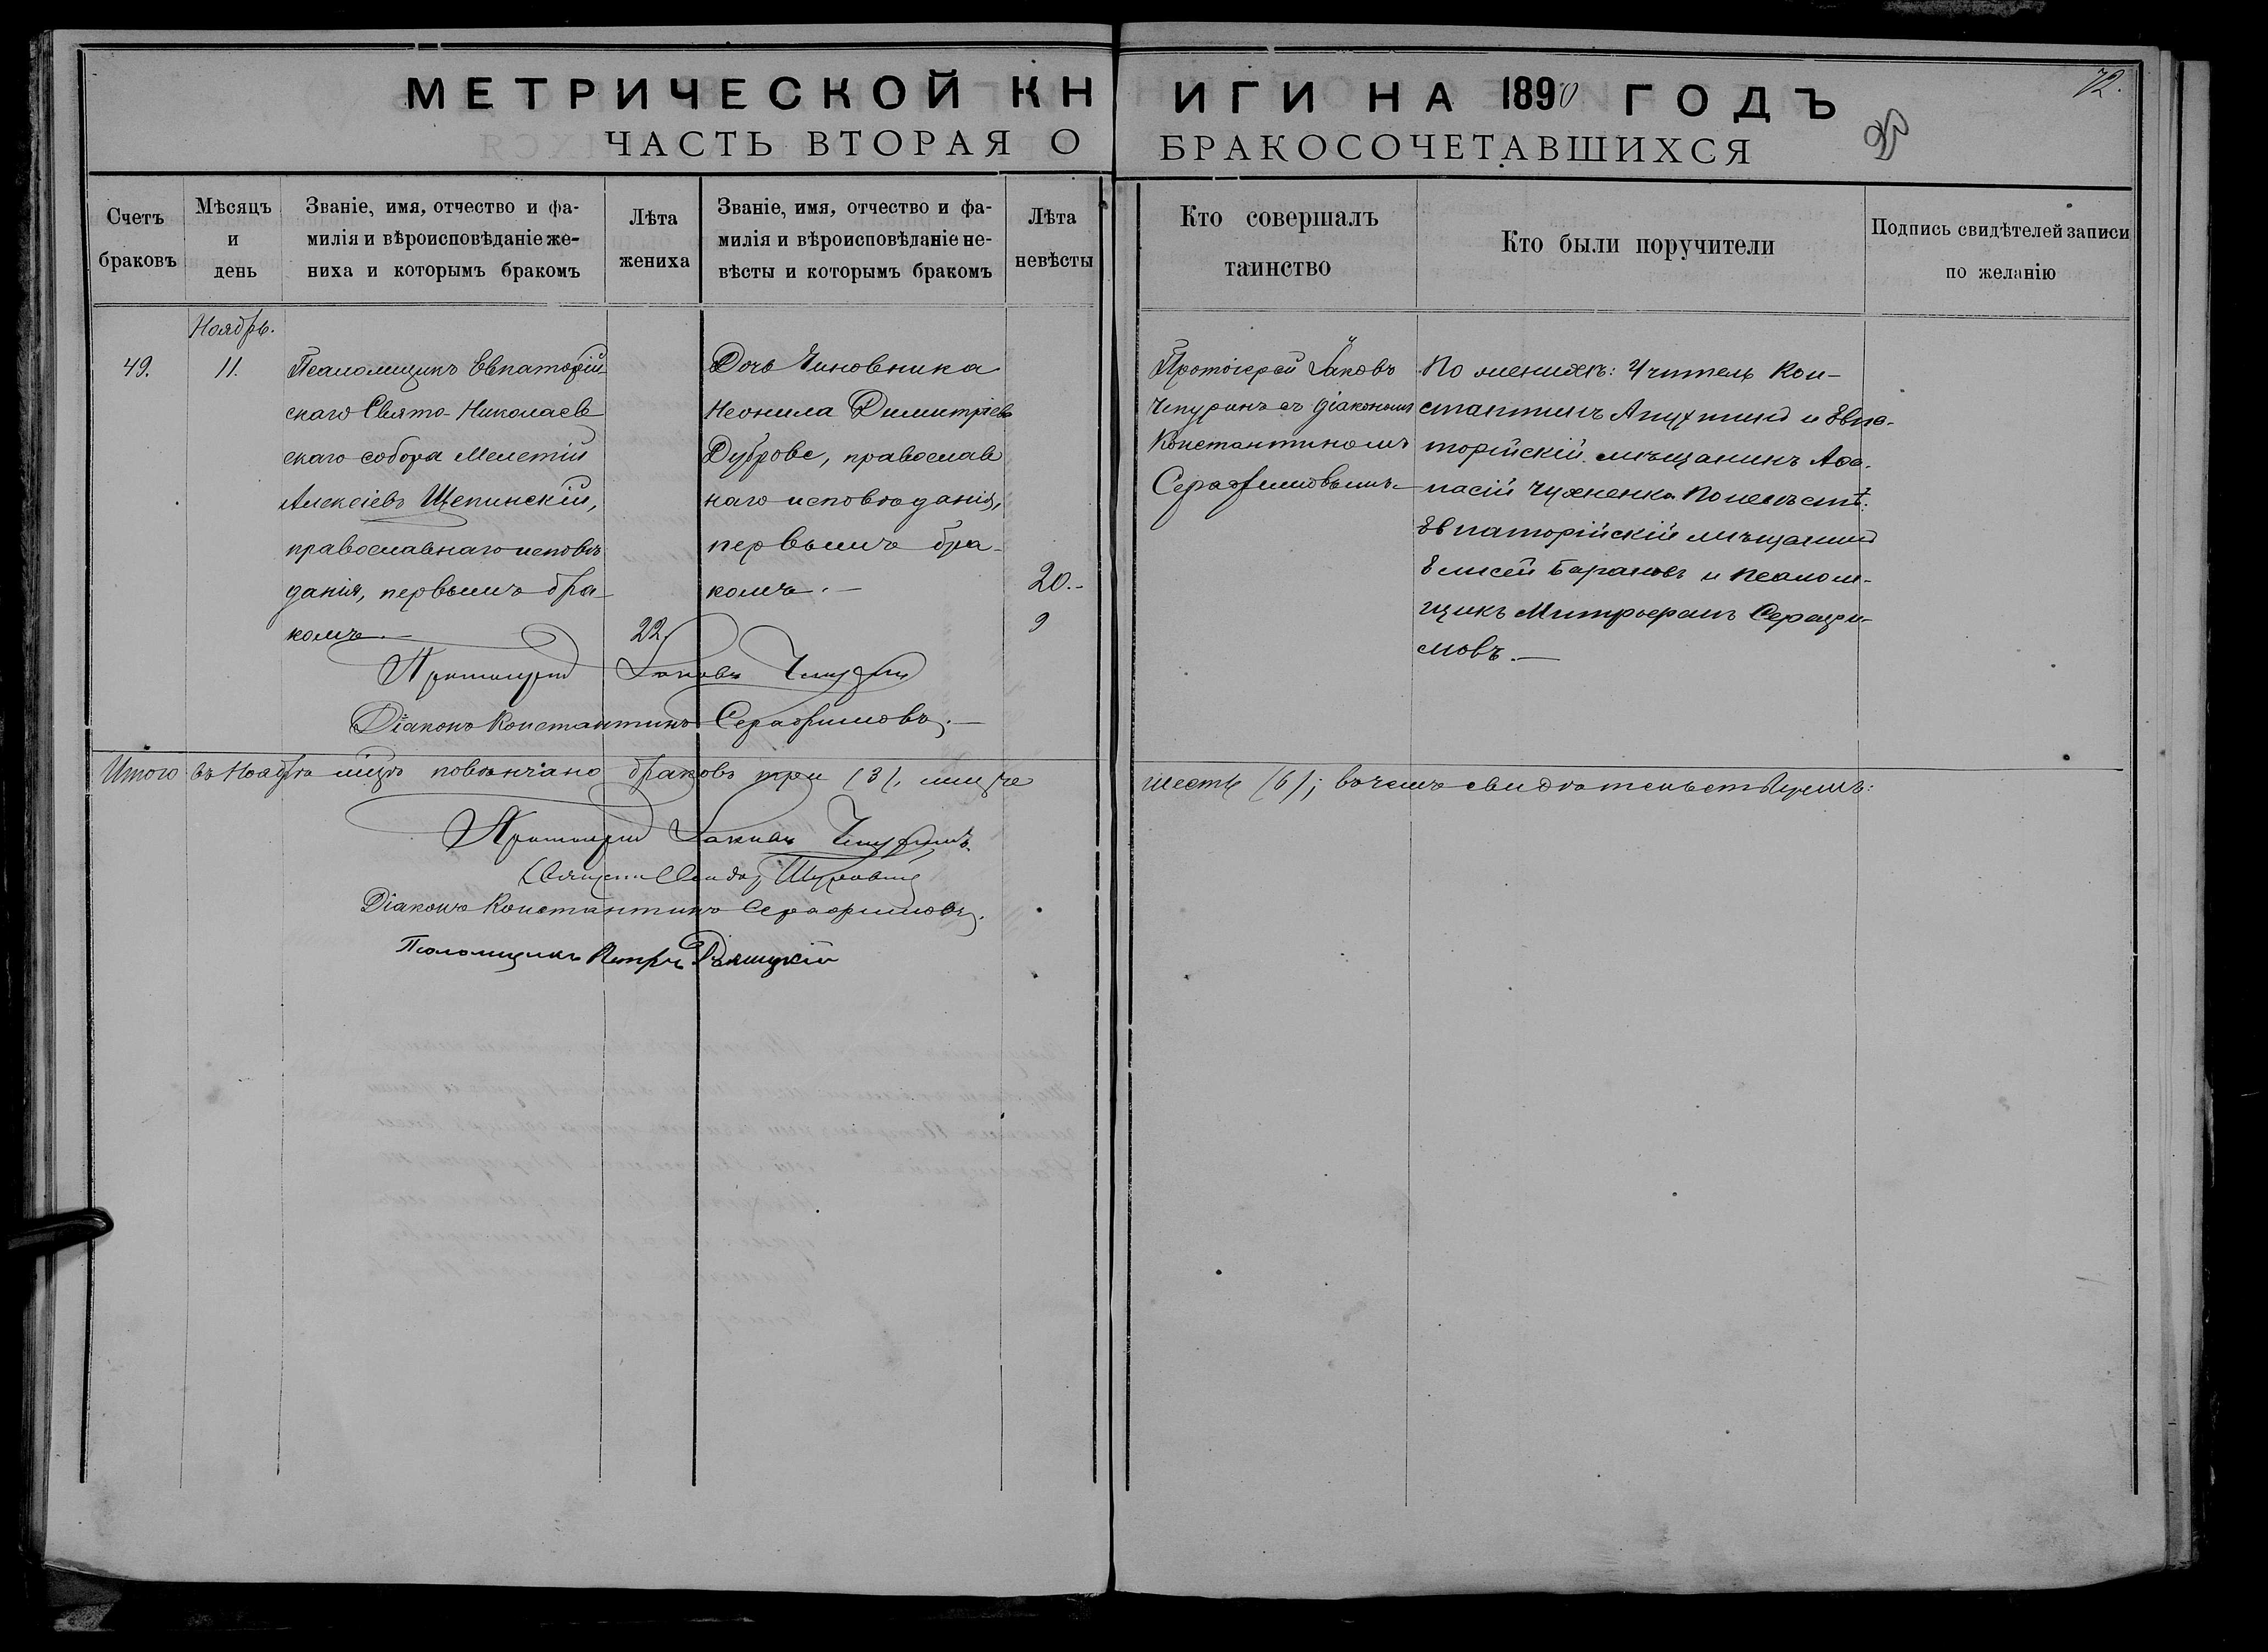 МЕТРИЧЕСКОЙ КНИГИ НА 1890 ГОДЪ
72.
ЧАСТЬ ВТОРАЯ О БРАКОСОЧЕТАВШИХСЯ
Счетъ
браковъ
Мѣсяцъ
и
день
Званіе, имя, отчество и фа-
милія и вѣроисповѣданіе же-
ниха и которымъ бракомъ
Лѣта
жениха
Званіе, имя, отчество и фа-
милія и вѣроисповѣданіе не-
вѣсты и которымъ бракомъ
Лѣта
невѣсты
Кто совершалъ
таинство
Кто были поручители
Подпись свидѣтелей записи
по желанію
49.
Ноябрь.
11.
Псаломщикъ Евпаторій
скаго Свято-Николаев
скаго собора Мелетій
Алексіевъ Щепинскій,
православнаго исповѣ
данія, первымъ бра-
комъ.—
22.
Дочь Чиновника
Неонила Димитріева
Дуброва, православ
наго исповѣданія,
первымъ бра-
комъ.—
20.-
9
Протоіерей Іаковъ
Чепуринъ съ діакономъ
Константиномъ
Серафимовымъ.—
По женихѣ: Учитель Кон-
стантинъ Апухтинъ и Евпа-
торійскій мѣщанинъ Афа-
насій Чухненко. По невѣстѣ:
Евпаторійскій мѣщанинъ
Елисей Барановъ и псалом-
щикъ Митрофанъ Серафи-
мовъ.—
Протоіерей Іаковъ Чепуринъ
Діаконъ Константинъ Серафимовъ.—
Итого въ Ноябрѣ мѣсяцѣ повѣнчано браковъ три (3), лицъ же шесть (6); въ чемъ свидѣтельствуемъ:
Протоіерей Іаковъ Чепуринъ.
Діаконъ Константинъ Серафимовъ.
Псаломщикъ Петръ